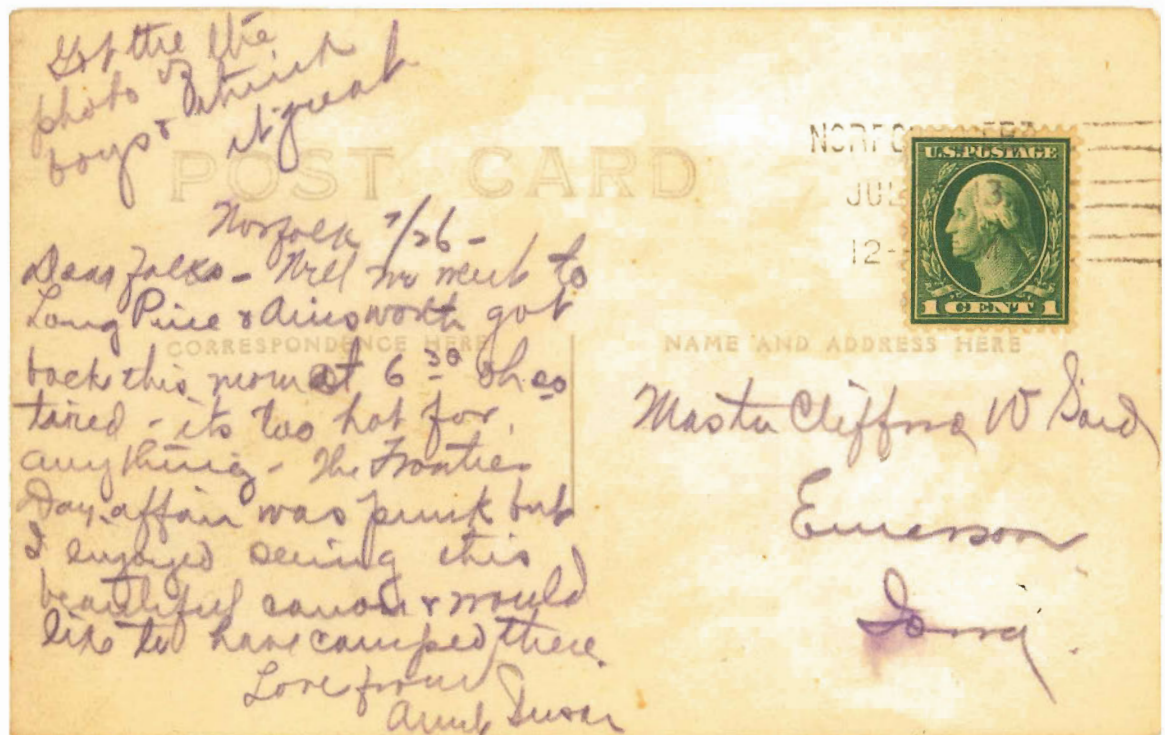 Got the the
photo of
boys & think
it great
POST CARD
NORFO
JUL 13
12-
U.S. POSTAGE
1 CENT 1
Norfolk 7/26 -
Dear Folks - Well we went to
Long Pine & Ainsworth got
back this morn at 6 30 Oh so
tired - its too hot for
anything - The Frontier
Day affair was punk but
I enjoyed seeing this
beautiful canon & would
like to have camped there.
Love from
Aunt Susan
CORRESPONDENCE HERE
NAME AND ADDRESS HERE
Master Clifford W
Emerson
Iowa.